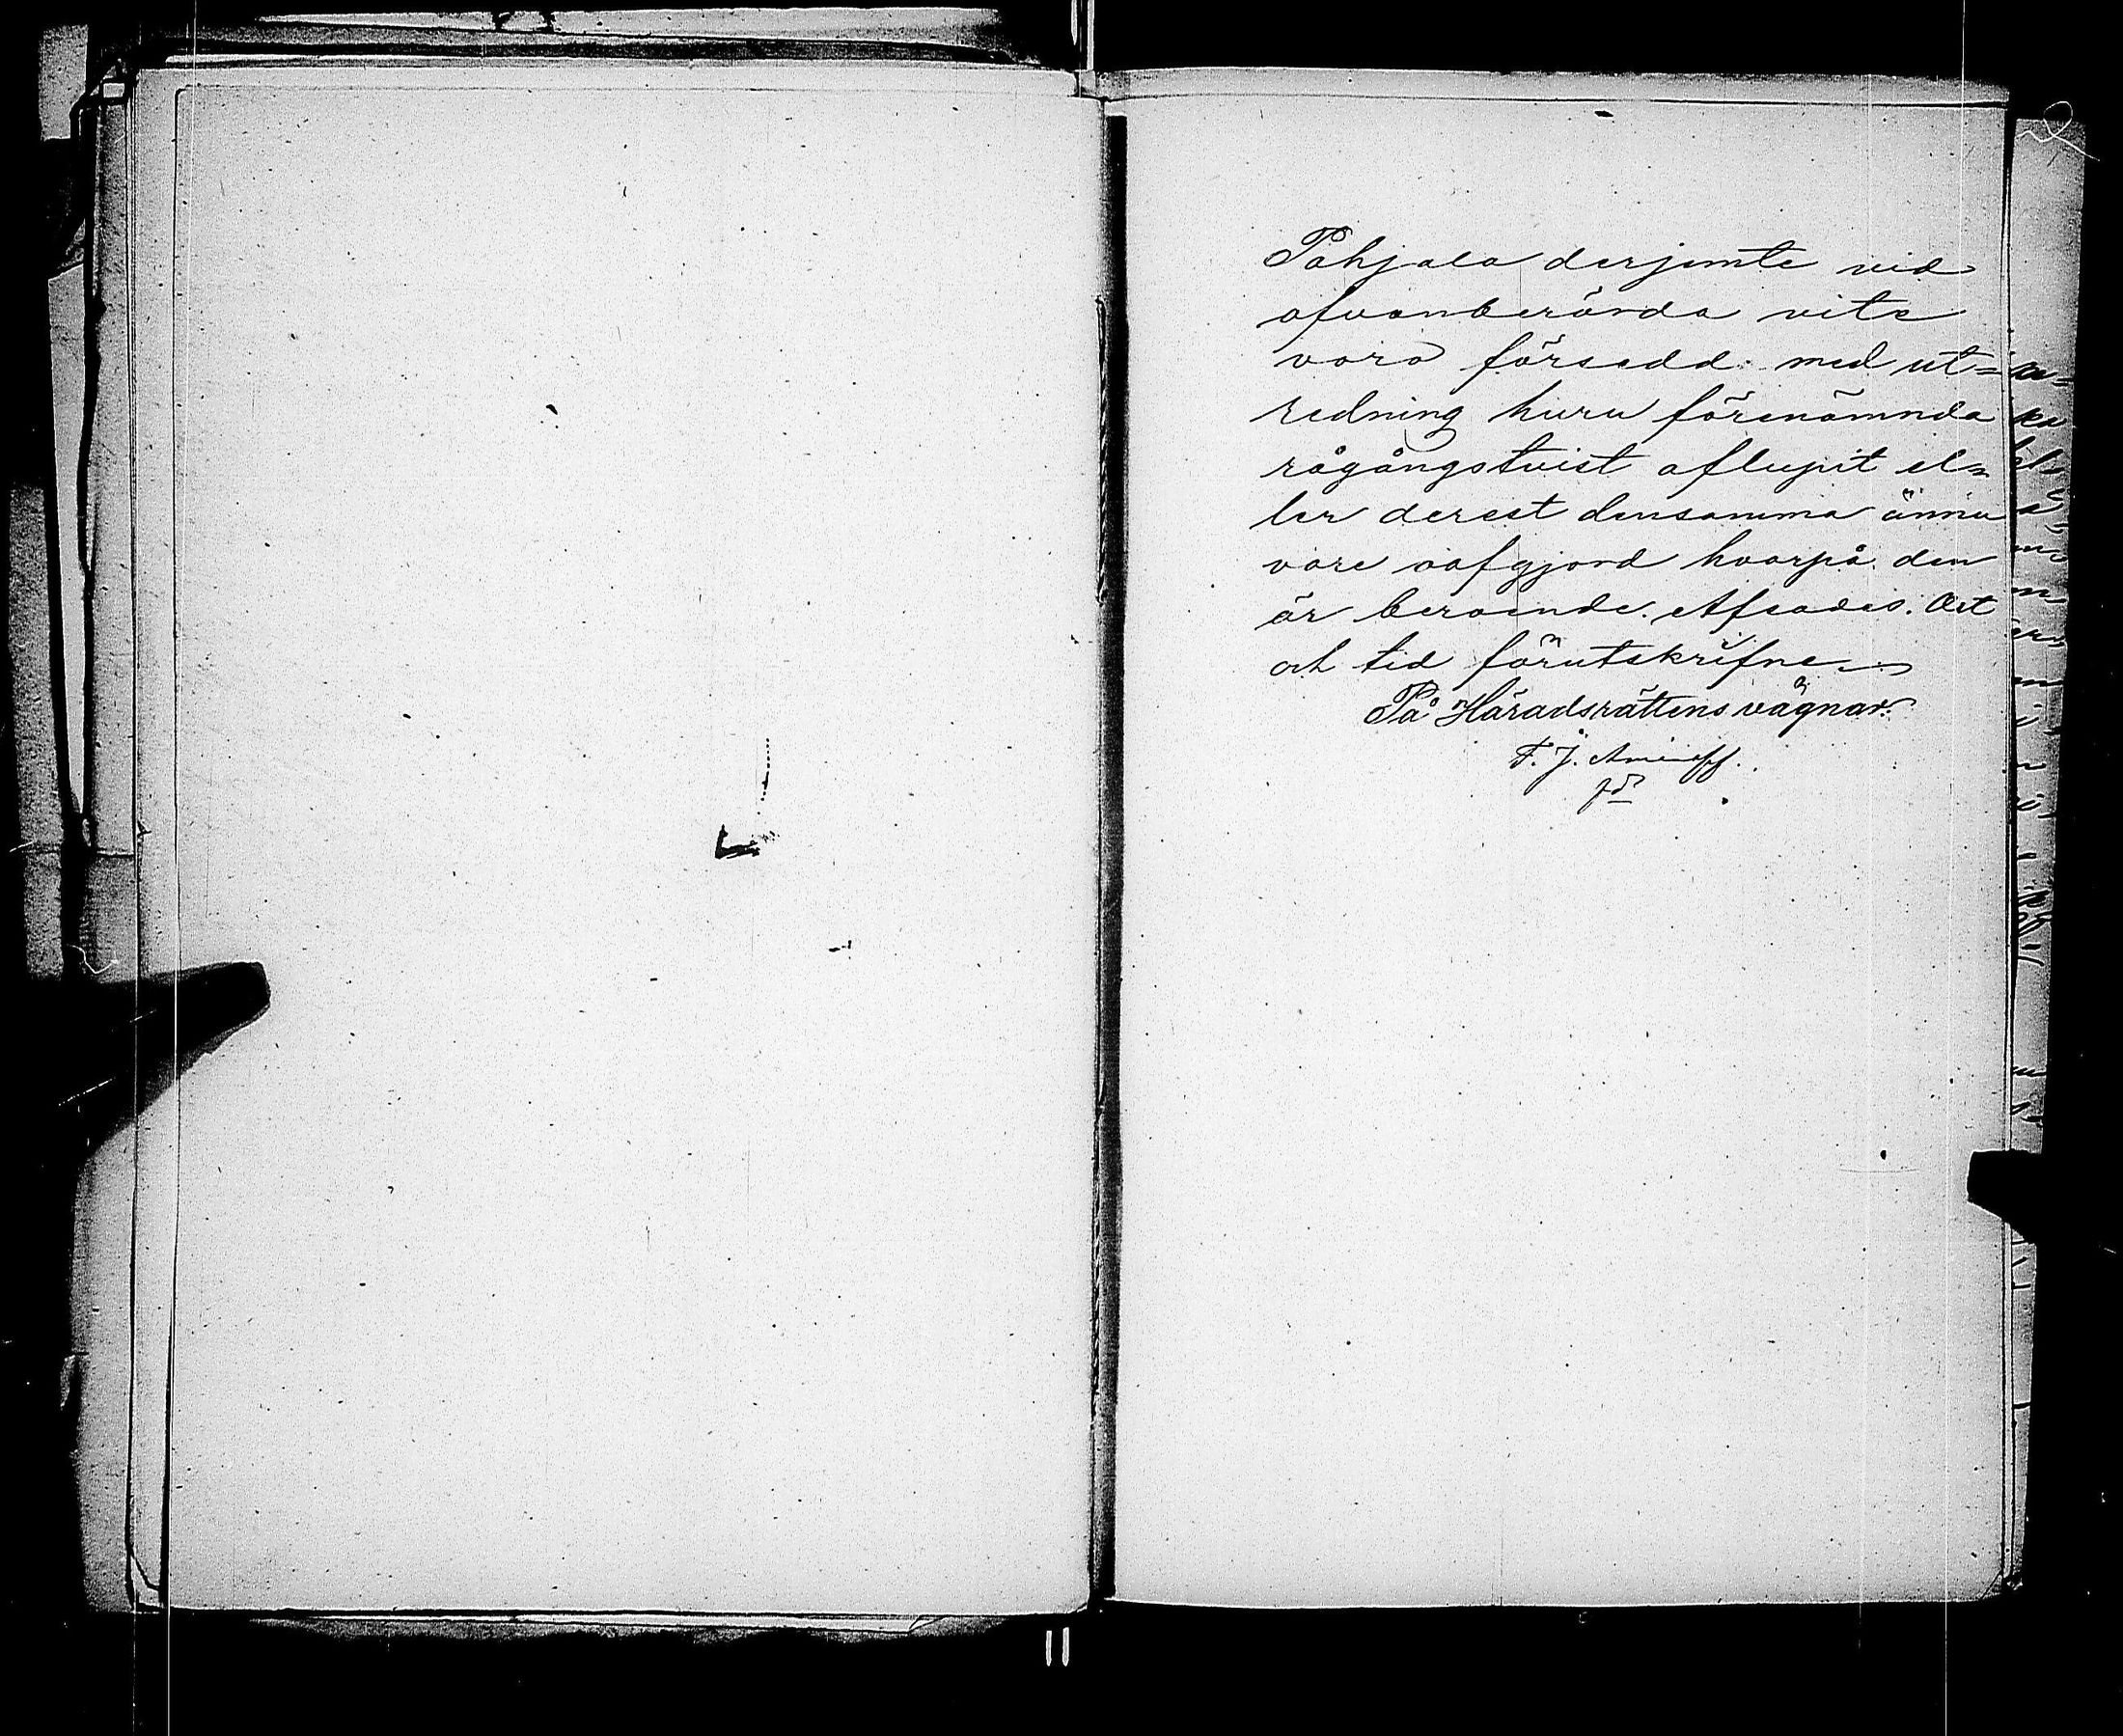 Pohjala derjemte vid
ofvanberörda vite
vara försedd med ut-
redning huru förenämnda
rågångstvist aflupit el-
ler derest densamma ännu
vore oafgjord hvarpå den
är beroende. Afsades. Ort
och tid förutskrifne.
På Häradsrättens vägnar:
F. J. Aminoff.